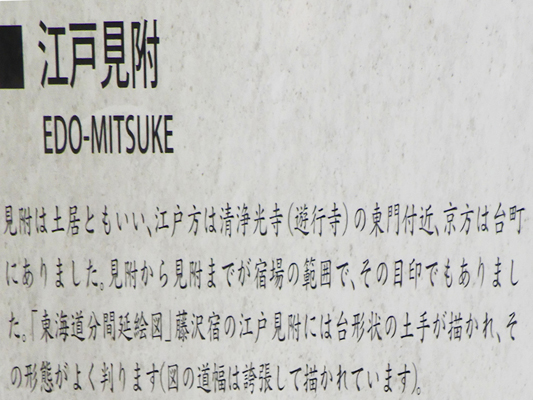 江戸見附
EDO-MITSUKE
見附は土居ともいい、江戸方は清浄光寺(遊行寺)の東門付近、京方は台町
にありました。見附から見附までが宿場の範囲で、その目印でもありまし
た。「東海道分間延絵図」藤沢宿の江戸見附には台形状の土手が描かれ、そ
の形態がよく判ります(図の道幅は誇張して描かれています)。